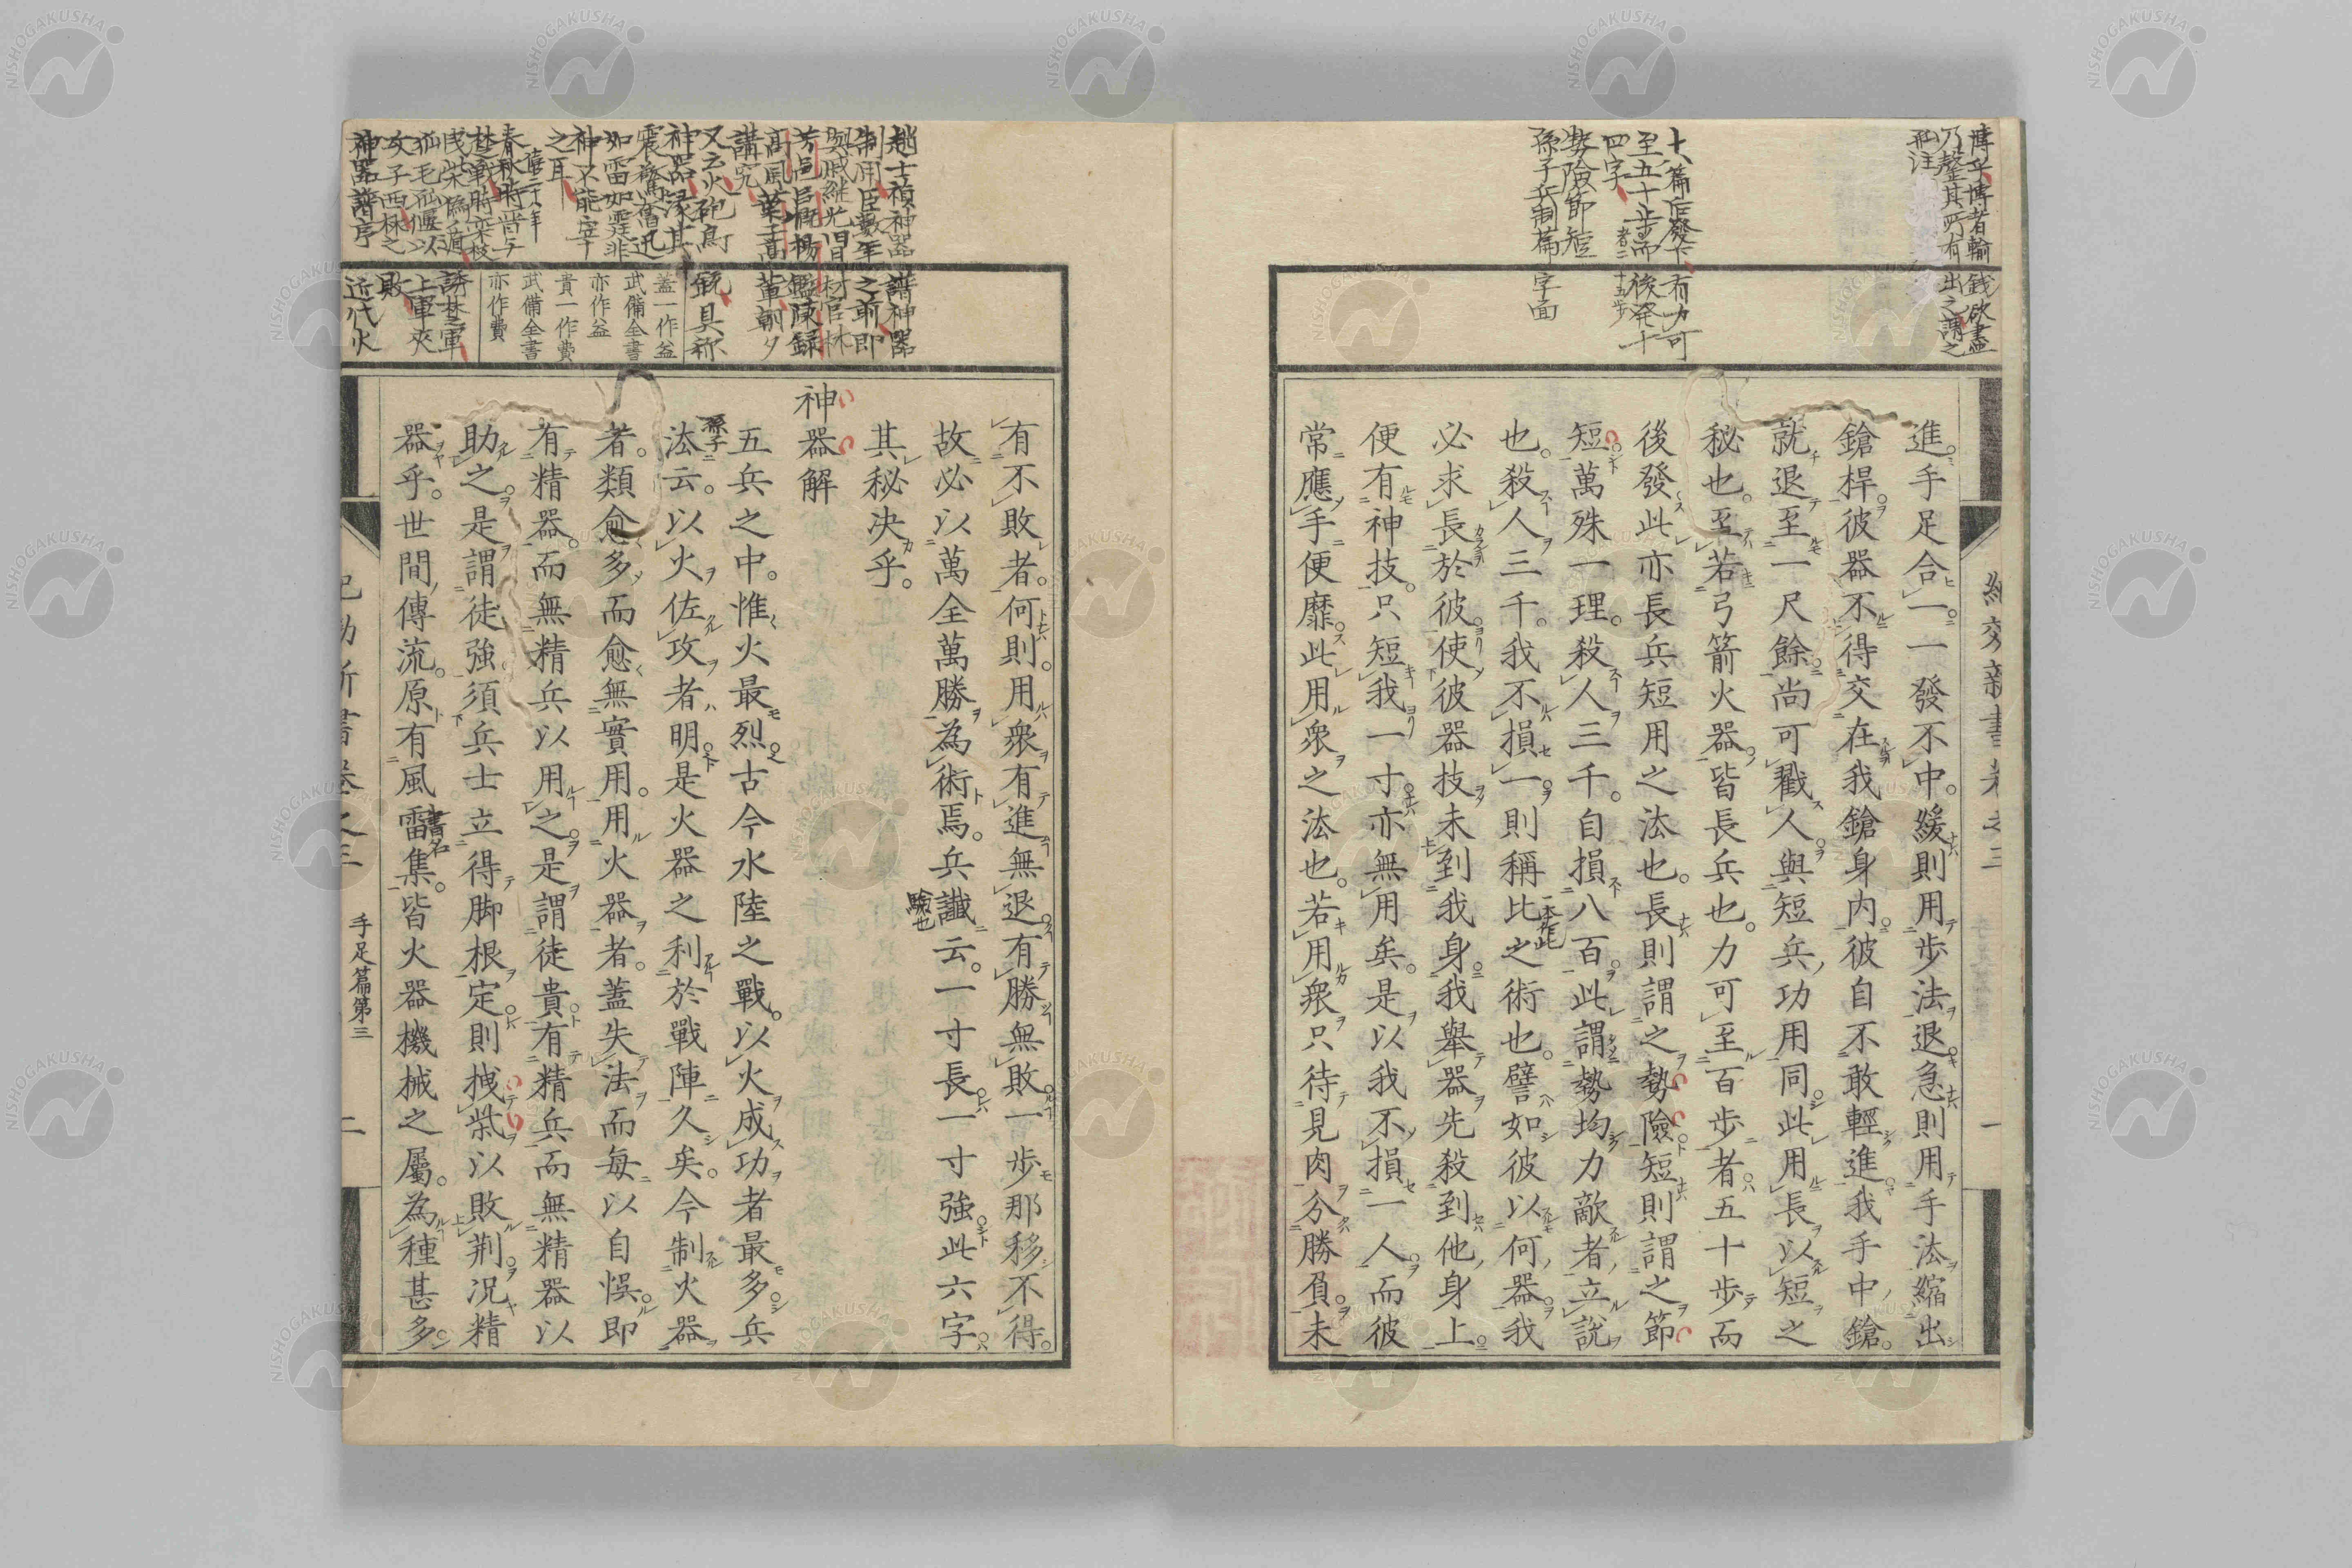 進手足合一一發不中緩則用步法退急則用手法縮出
鎗桿彼器不得交在我鎗身内彼自不敢輕進我手中鎗
就退至一尺餘尚可戳人與短兵功用同此用長以短之
秘也至若弓箭火器皆長兵也力可至百步者五十步而
後發此亦長兵短用之法也長則謂之勢險短則謂之節
短萬殊一理殺人三千自損八百此謂勢均力敵者立說
也殺人三千我不損一則稱比之術也譬如彼以何器我
必求長於彼使彼器技未到我身我舉器先殺到他身上
便有神技只短我一寸亦無用矣是以我不損一人而彼
常應手便靡此用衆之法也若用衆只待見肉分勝負未
有不敗者何則用衆有進無退有勝無敗一步那移不得
故必以萬全萬勝為術焉兵讖云一寸長一寸強此六字
其秘决乎
神器解
五兵之中惟火最烈古今水陸之戰以火成功者最多兵
法云以火佐攻者明是火器之利於戰陣久矣今制火器
者類愈多而愈無實用用火器者蓋失法而每以自悞即
有精器而無精兵以用之是謂徒貴有精兵而無精器以
助之是謂徒強須兵士立得脚根定則拽柴以敗荆况精
器乎世間傳流原有風雷集皆火器機械之屬為種甚多
手足篇第三
二
博乎博者輸錢欲盡
乃罄其所有出之謂之
孤注
十八篇后發下有力可
至五十步而後発十
四字
勢險節短
孫子兵制篇字面
趙士禎神器譜神器
制用臣數年之前即
與戚継光旧材官林
芳邑臣侃楊鑑陳録
高風葉子高董朝夕
講究
又云火砲鳥銃具称
神器縁其
震驚奮迅
如雷如霆非
神不能宰
之耳
蓋一作益
武備全書
亦作益
貴一作費
武備全書
亦作費
僖二十八年
孫子
驗也
書名
一本作此
神器譜序